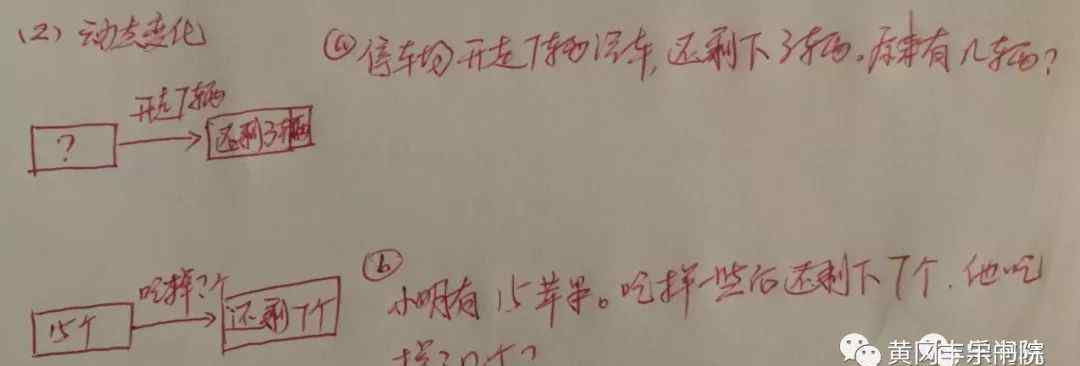 (2) 动态变化
ⓐ停车场开走7辆汽车,还剩下3辆。原来有几辆?
开走7辆
?
还剩3辆
ⓑ
吃掉?个
15个
还剩7个
小明有15苹果。吃掉一些后还剩下7个.他吃
掉几个?